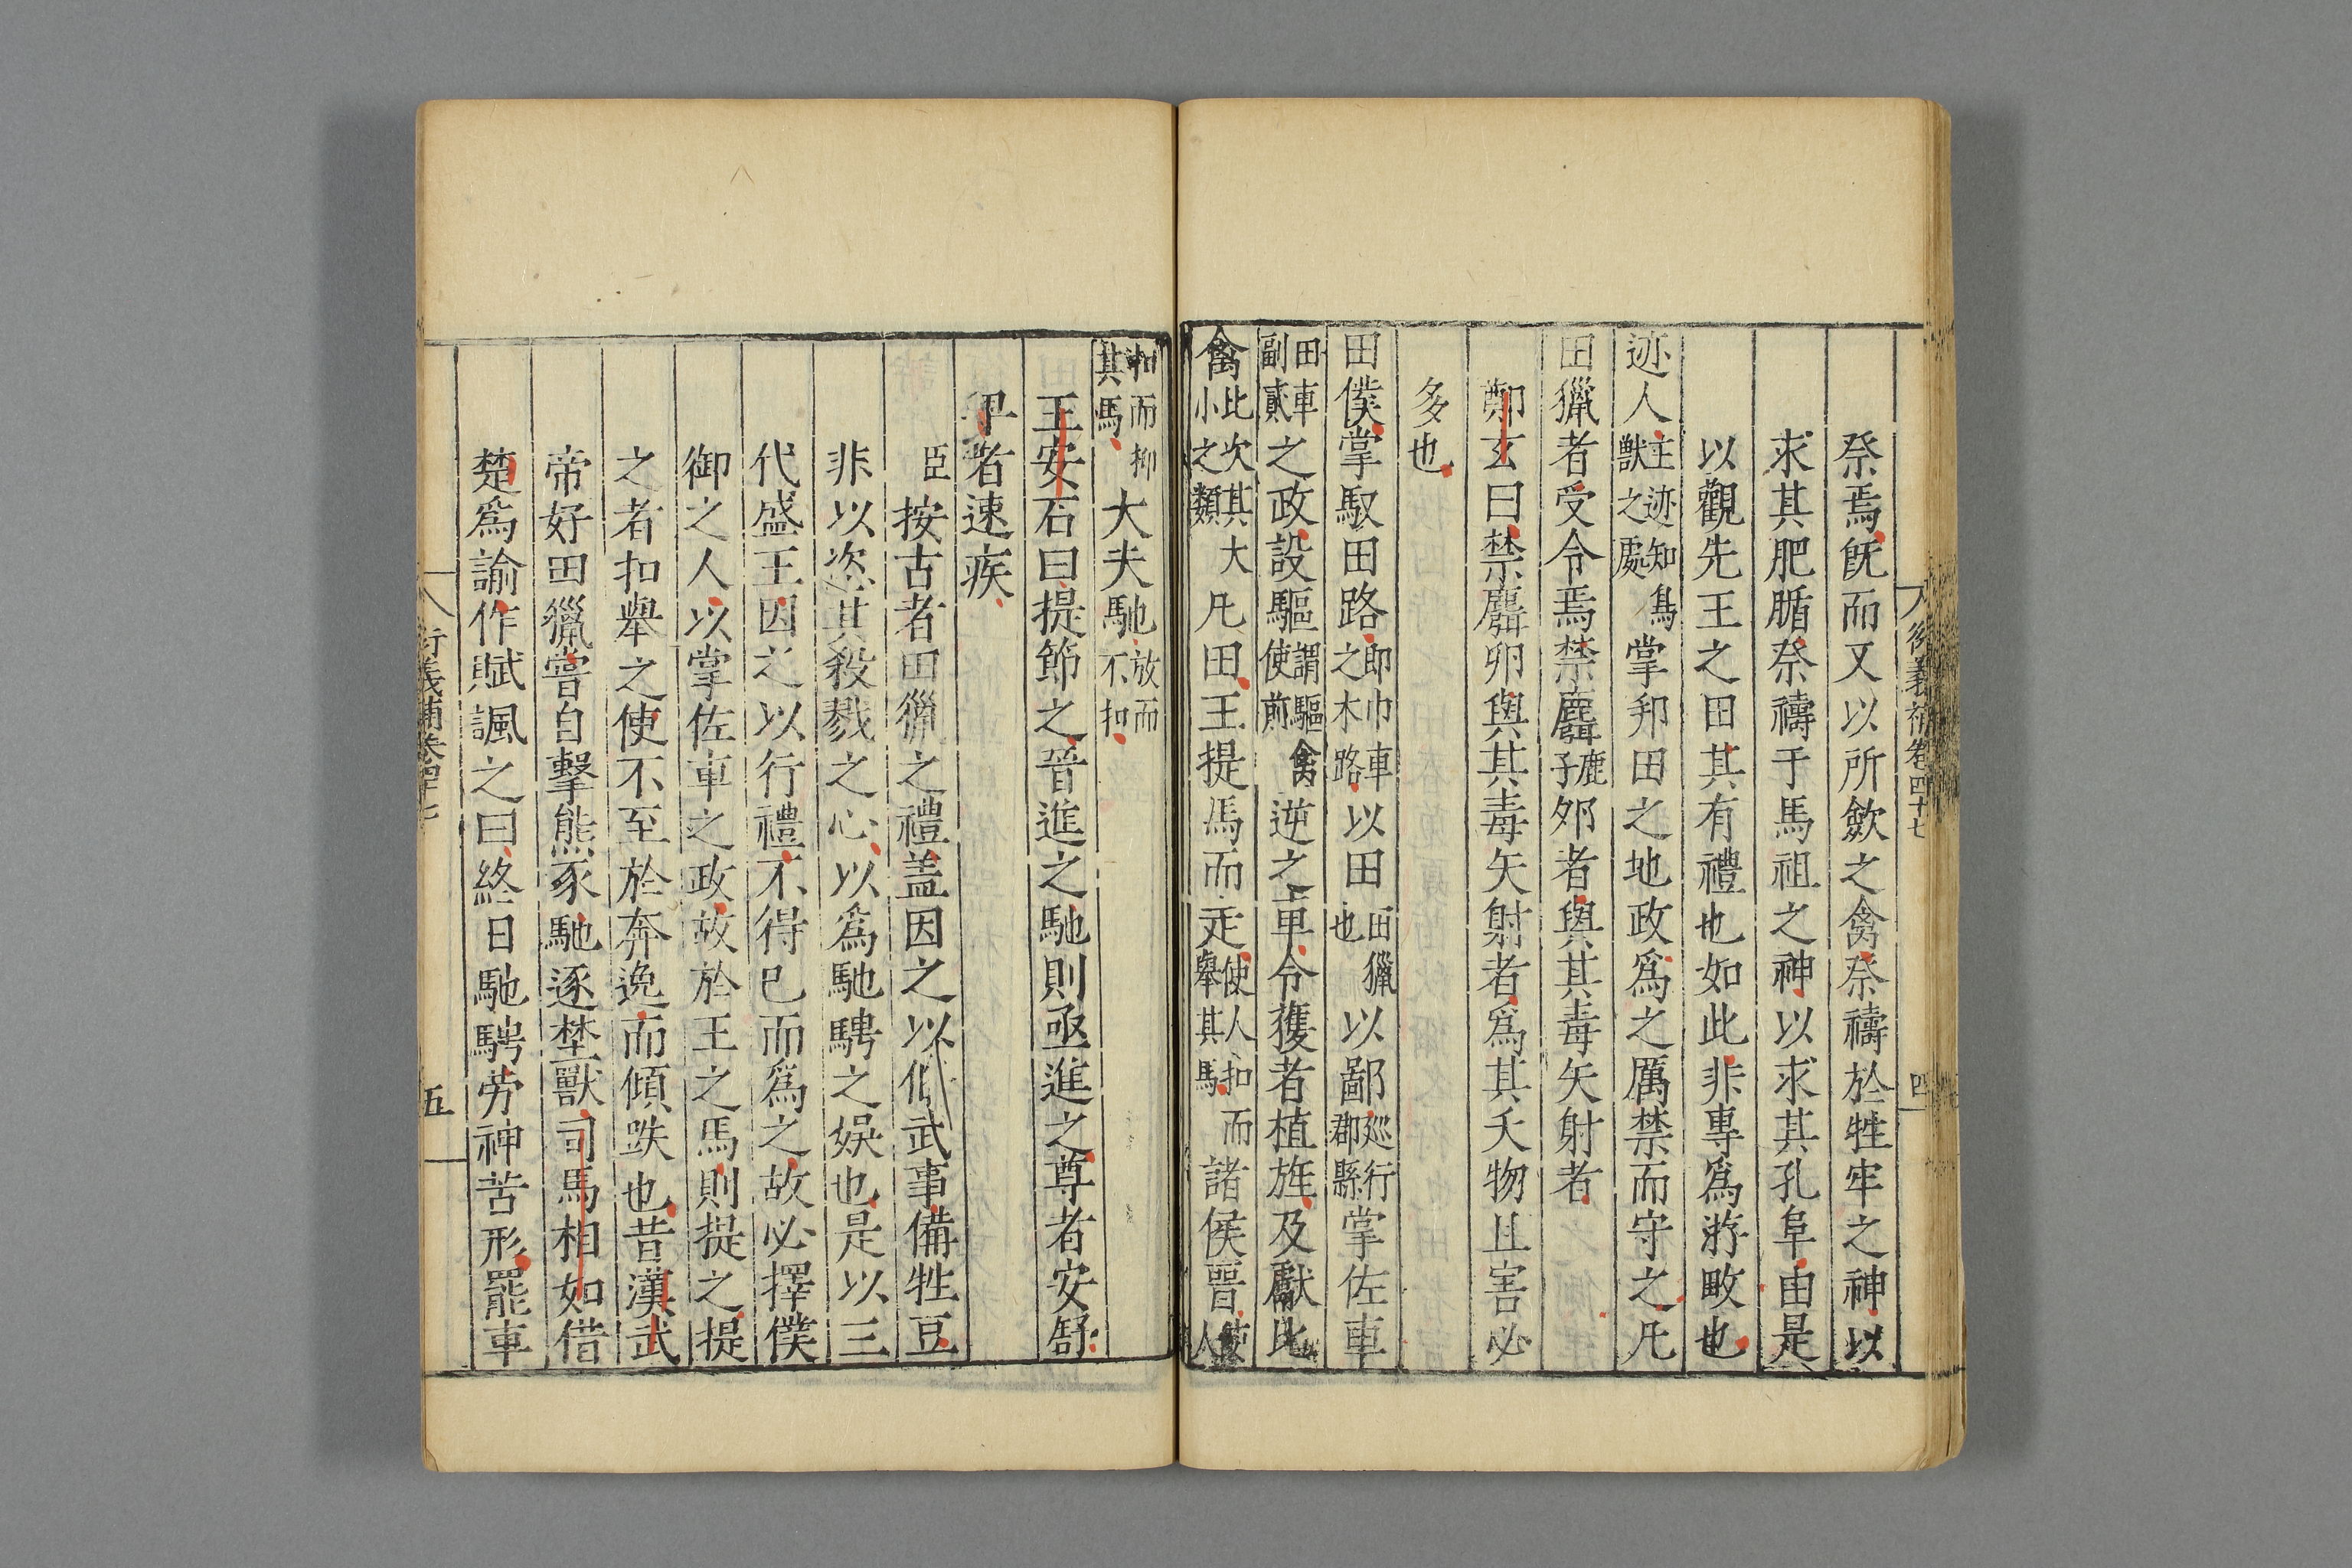 衍義補卷四十七 四
祭焉旣而又以所歛之禽祭禱於牲牢之神以
求其肥腯祭禱于馬祖之神以求其孔阜由是
以觀先王之田其有禮也如此非專爲游畋也
迹人主迹知鳥獸之處掌邦田之地政爲之厲禁而守之凡
田獵者受令焉禁麛鹿子卵者與其毒矢射者
鄭玄曰禁麛卵與其毒矢射者爲其夭物且害必
多也
田僕掌馭田路即巾車之木路以田田獵也以鄙巡行郡縣掌佐車
田車副貳之政設驅謂驅禽使前逆之車令獲者植旌及獻比
禽比次其大小之類凡田王提馬而走使人扣而舉其馬諸侯晉使人
扣而抑其馬大夫馳放而不扣
王安石曰提節之晉進之馳則亟進之尊者安舒
卑者速疾
臣按古者田獵之禮盖因之以備武事備牲豆
非以恣其殺戮之心以爲馳騁之娛也是以三
代盛王因之以行禮不得已而爲之故必擇僕
御之人以掌佐車之政故於王之馬則提之提
之者扣舉之使不至於奔逸而傾跌也昔漢武
帝好田獵嘗自擊熊豕馳逐埜獸司馬相如借
楚爲諭作賦諷之曰終日馳騁勞神苦形罷車
衍義補卷四十七 五